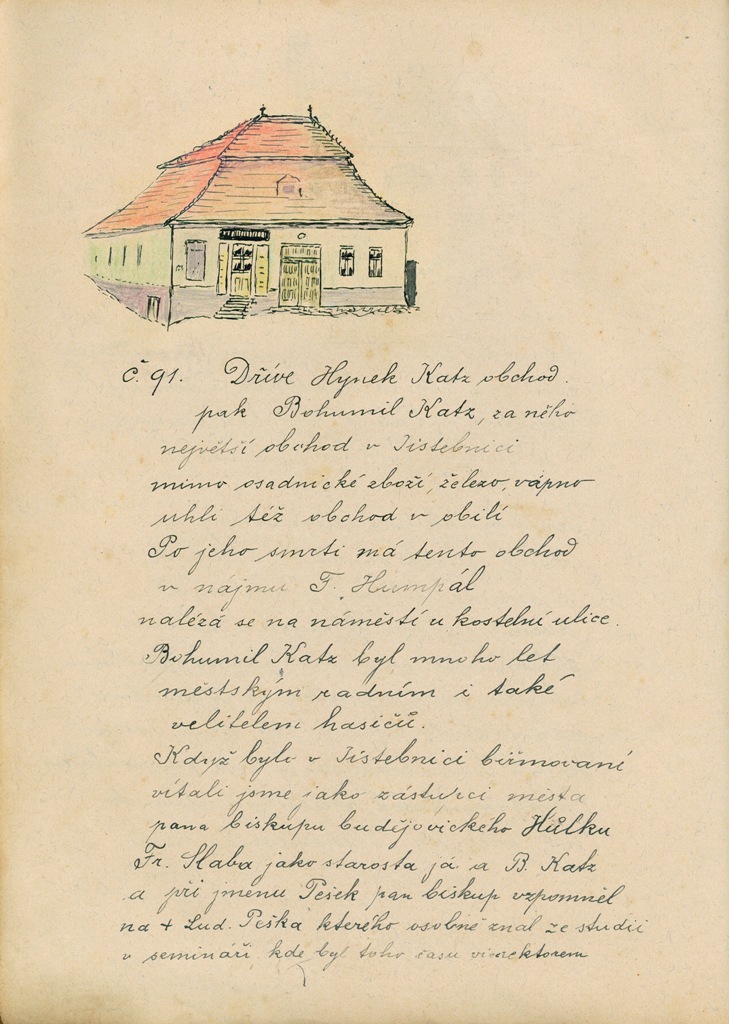 č. 91. Dříve Hynek Katz obchod.
pak Bohumil Katz, za něho
největší obchod v Jistebnici
mimo osadnické zboží, železo, vápno
uhlí též obchod v obilí
Po jeho smrti má tento obchod
v nájmu F. Humpál
nalézá se na náměstí u kostelní ulice.
Bohumil Katz byl mnoho let
městským radním i také
velitelem hasičů.
Když bylo v Jistebnici biřmovaní
vítali jsme jako zástupci města
pana biskupa budějovického Hůlku
Fr. Slaba jako starosta já a B. Katz
a při jmenu Pešek pan biskup vzpomněl
na + Lud. Peška kterého osobně znal ze studií
v semináři, kde byl toho času vicerektorem